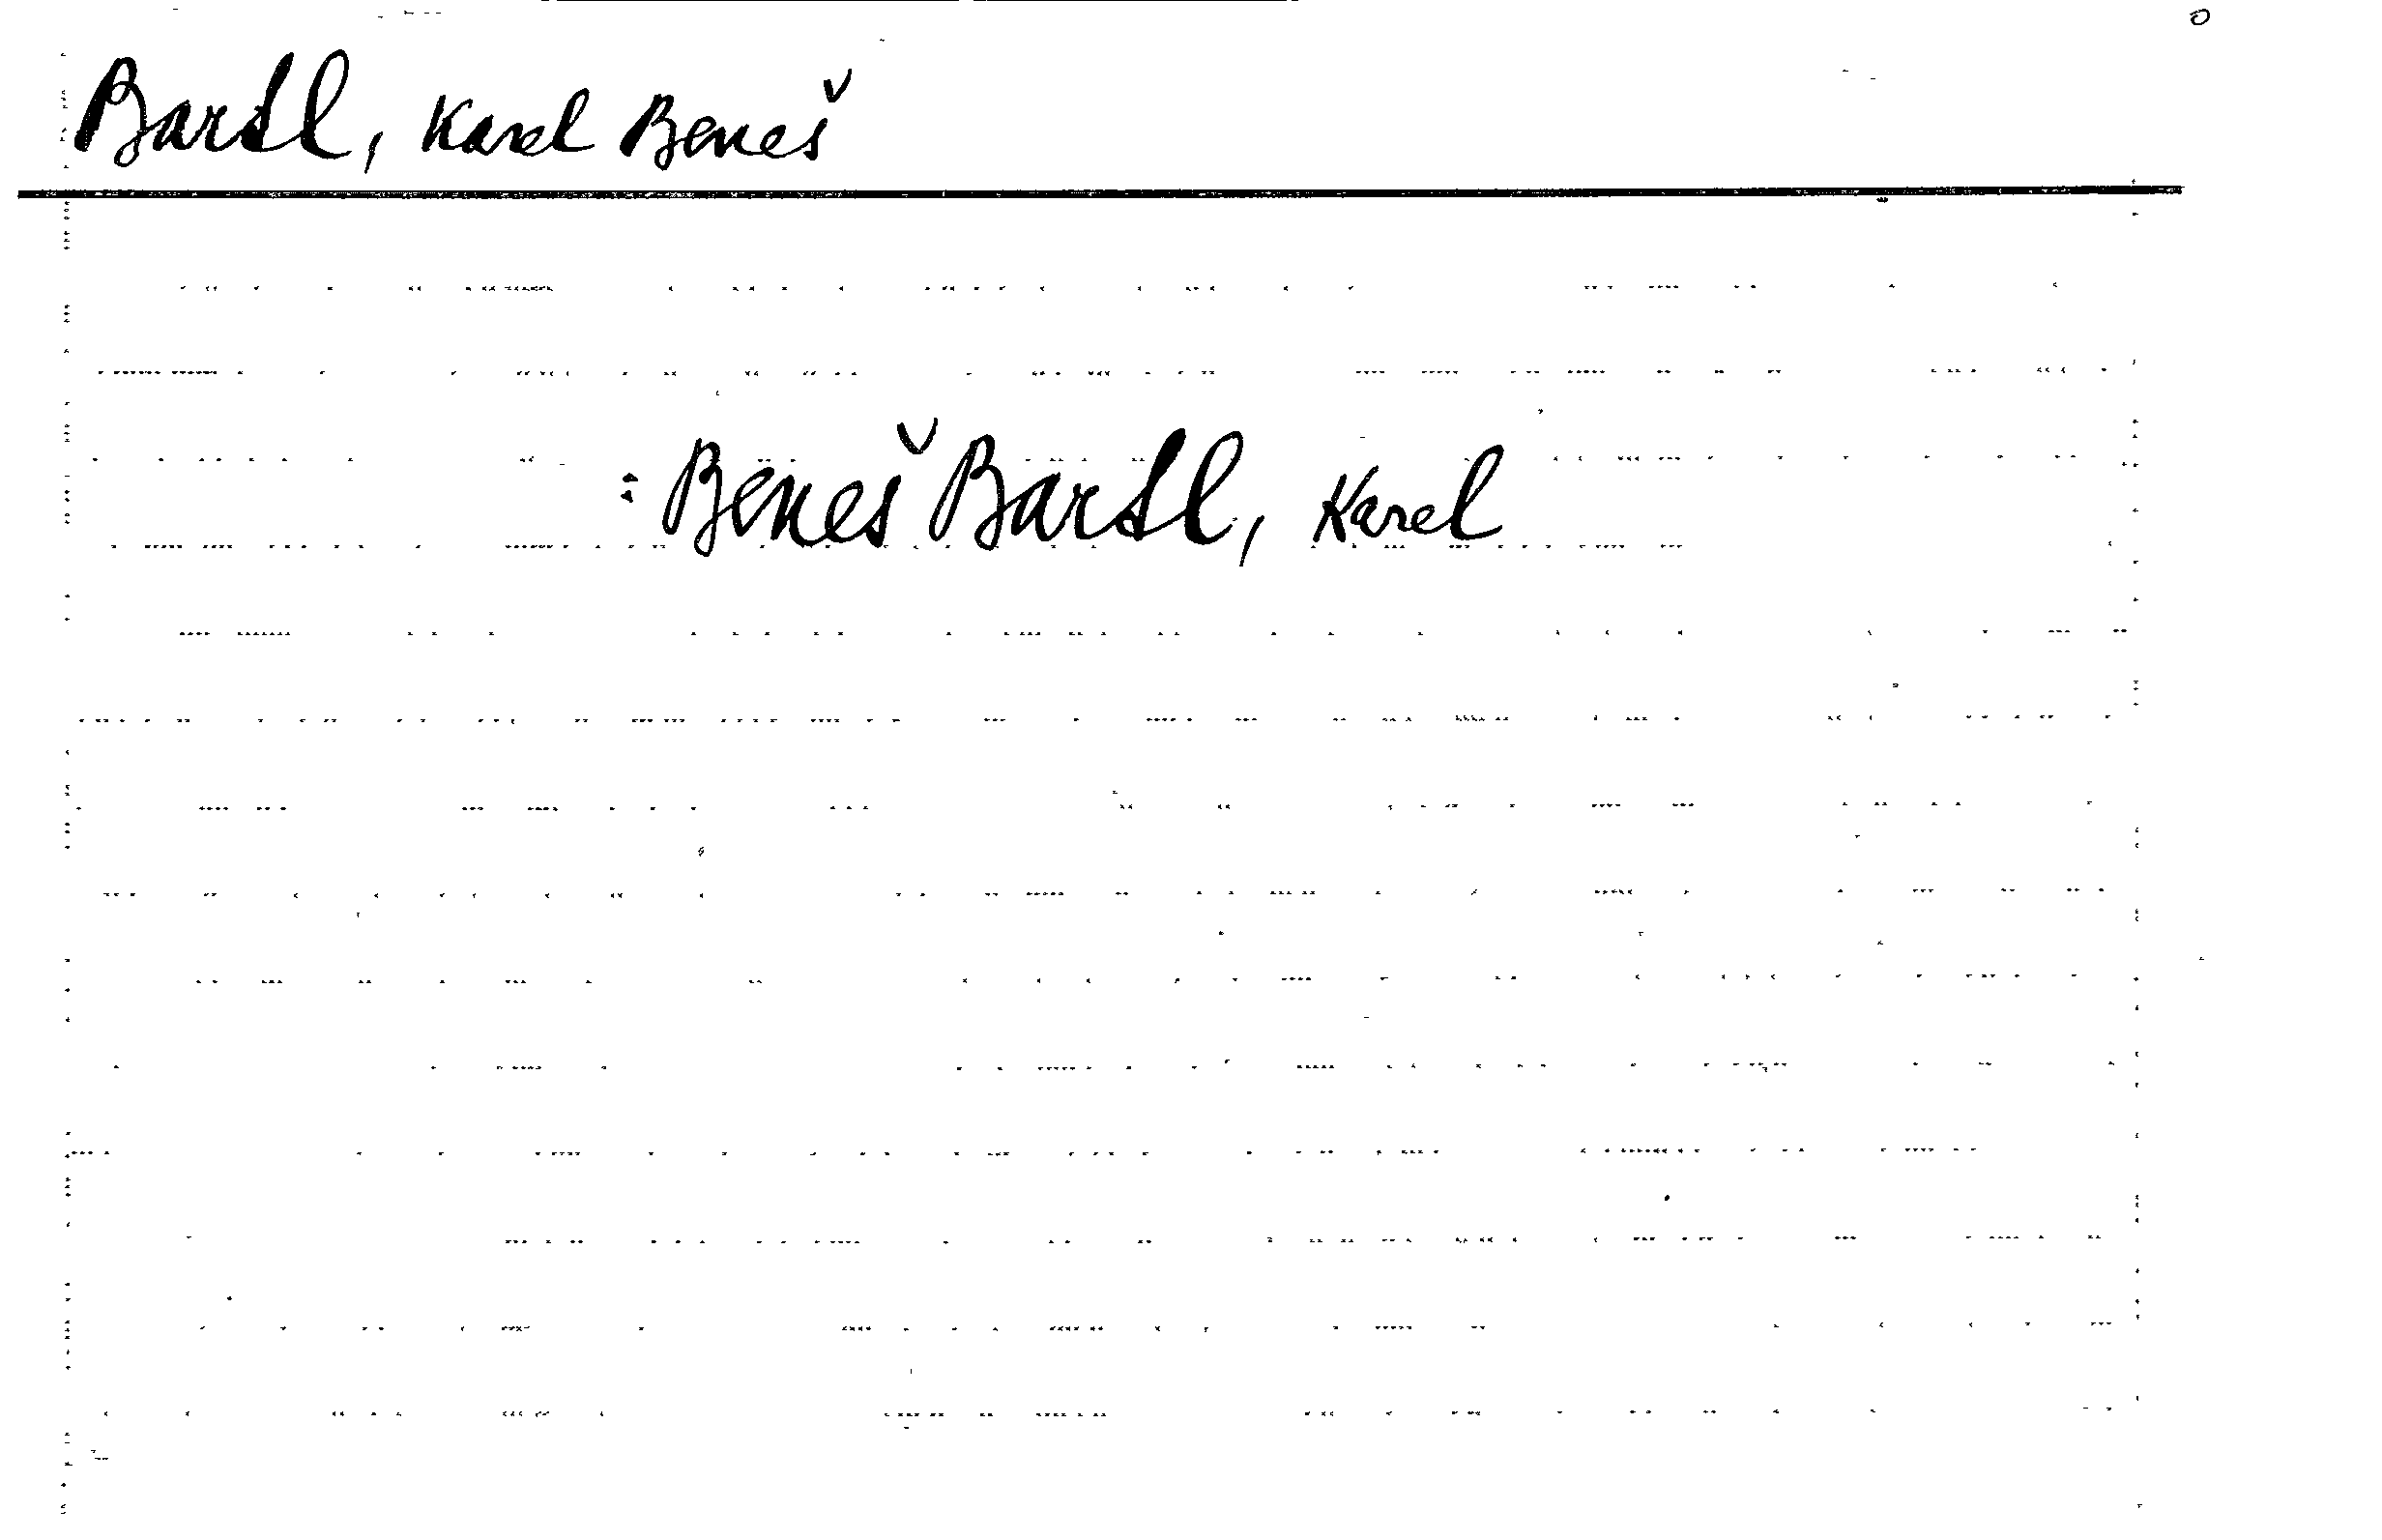 Bartl, Karel Beneš
: Beneš Bartl, Karel